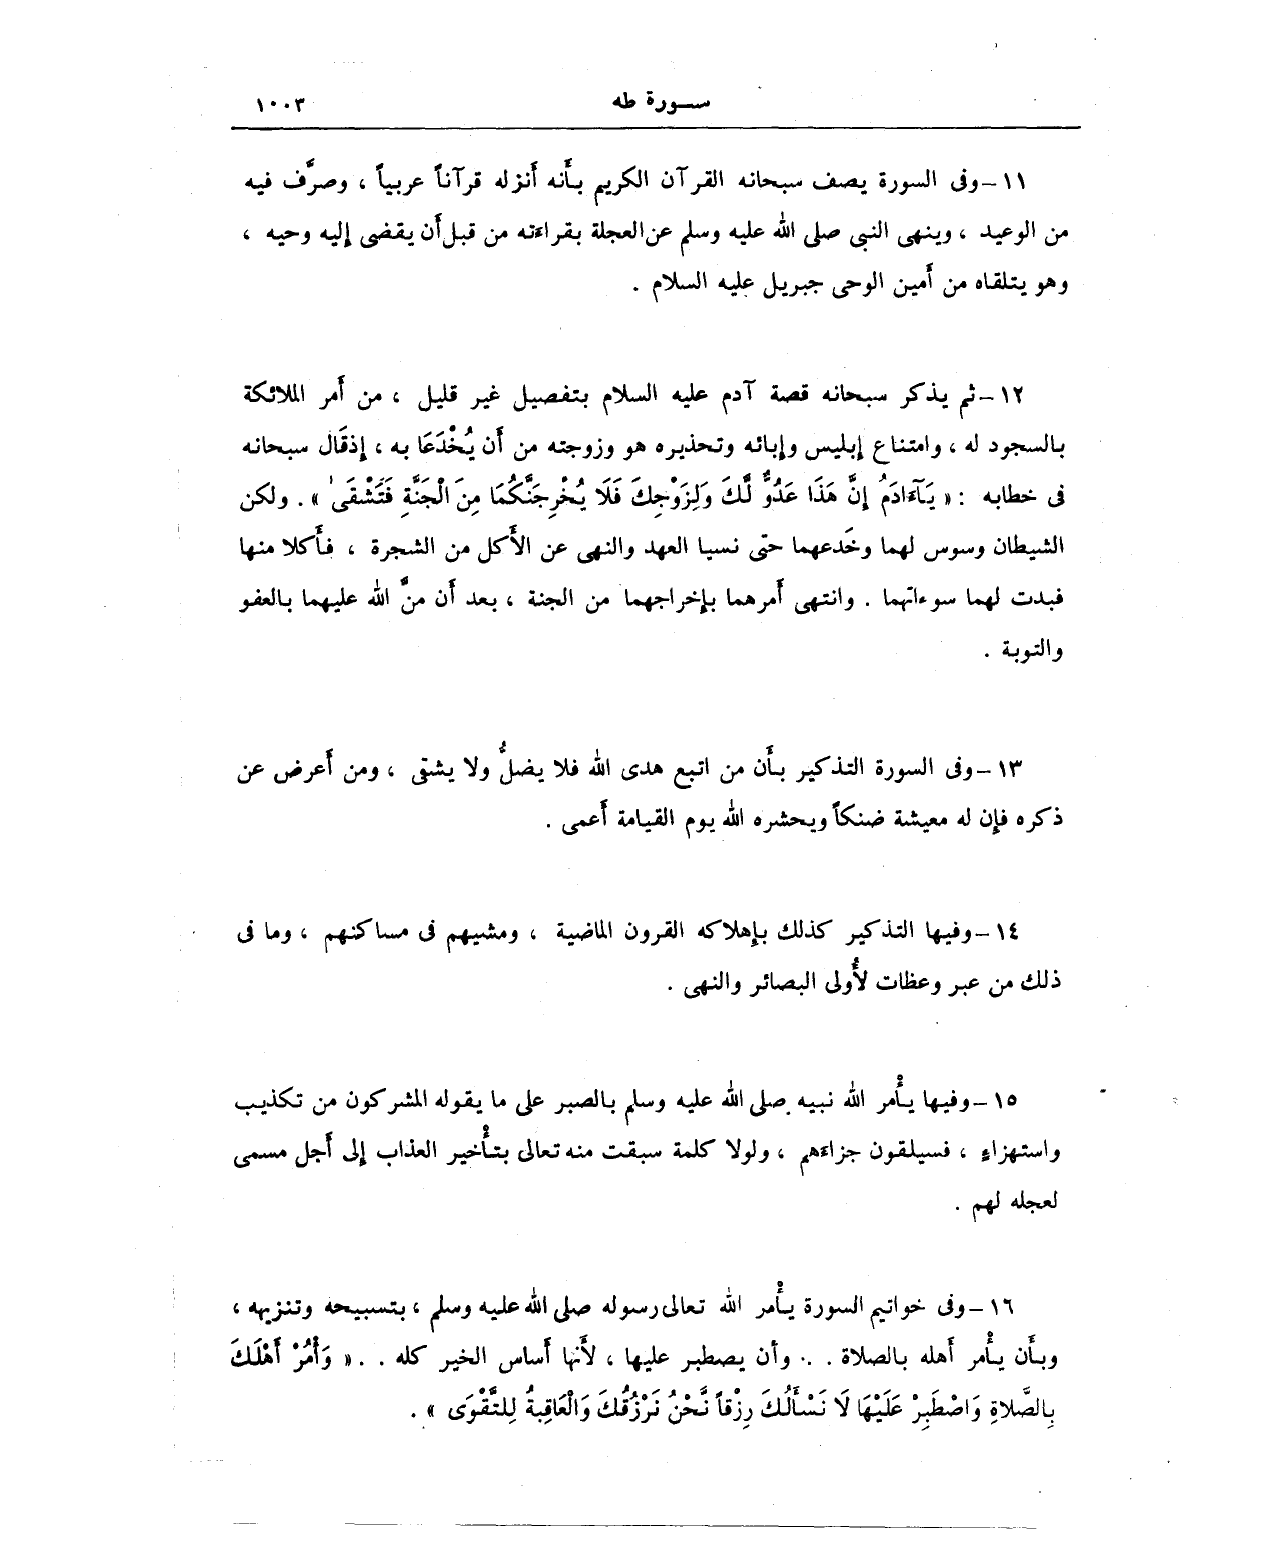 سورة طه ١٠٠٣
١١ – وفى السورة يصف سبحانه القرآن الكريم بأنه أنزله قرآناً عربياً ، وصرَّف فيه
من الوعيد ، وينهى النبى صلى الله عليه وسلم عن العجلة بقراءته من قبل أن يقضى إليه وحيه ،
وهو يتلقاه من أمين الوحى جبريل عليه السلام .
١٢ – ثم يذكر سبحانه قصة آدم عليه السلام بتفصيل غير قليل ، من أمر الملائكة
بالسجود له ، وامتناع إبليس وإبائه وتحذيره هو وزوجته من أن يُخْدَعَا به ، إذ قَال سبحانه
فى خطابه : « يَـٰٓـَٔادَمُ إِنَّ هَذَا عَدُوٌّ لَّكَ وَلِزَوْجِكَ فَلَا يُخْرِجَنَّكُمَا مِنَ الْجَنَّةِ فَتَشْقَىٰ » . ولكن
الشيطان وسوس لهما وخَدعهما حتى نسيا العهد والنهى عن الأَكل من الشجرة ، فأَكلا منها
فبدت لهما سوءاتهما . وانتهى أَمرهما بإِخراجهما من الجنة ، بعد أَن منَّ الله عليهما بالعفو
والتوبة .
١٣ – وفى السورة التذكير بأَن من اتبع هدى الله فلا يضلُّ ولا يشقى ، ومن أَعرض عن
ذكره فإِن له معيشة ضنكاً ويحشره الله يوم القيامة أَعمى .
١٤ – وفيها التذكير كذلك بإِهلاكه القرون الماضية ، ومشيهم فى مساكنهم ، وما فى
ذلك من عبر وعظات لأُولى البصائر والنهى .
١٥ – وفيها يأْمر الله نبيه صلى الله عليه وسلم بالصبر على ما يقوله المشركون من تكذيب
واستهزاءٍ ، فسيلقون جزاءهم ، ولولا كلمة سبقت منه تعالى بتأْخير العذاب إِلى أَجل مسمى
لعجله لهم .
١٦ – وفى خواتيم السورة يأْمر الله تعالى رسوله صلى الله عليه وسلم ، بتسبيحه وتنزيهه ،
وبأَن يأْمر أَهله بالصلاة . . . وأن يصطبر عليها ، لأَنها أَساس الخير كله . . « وَأْمُرْ أَهْلَكَ
بِالصَّلَاةِ وَاصْطَبِرْ عَلَيْهَا لَا نَسْأَلُكَ رِزْقاً نَّحْنُ نَرْزُقُكَ وَالْعَاقِبةُ لِلتَّقْوَى » .